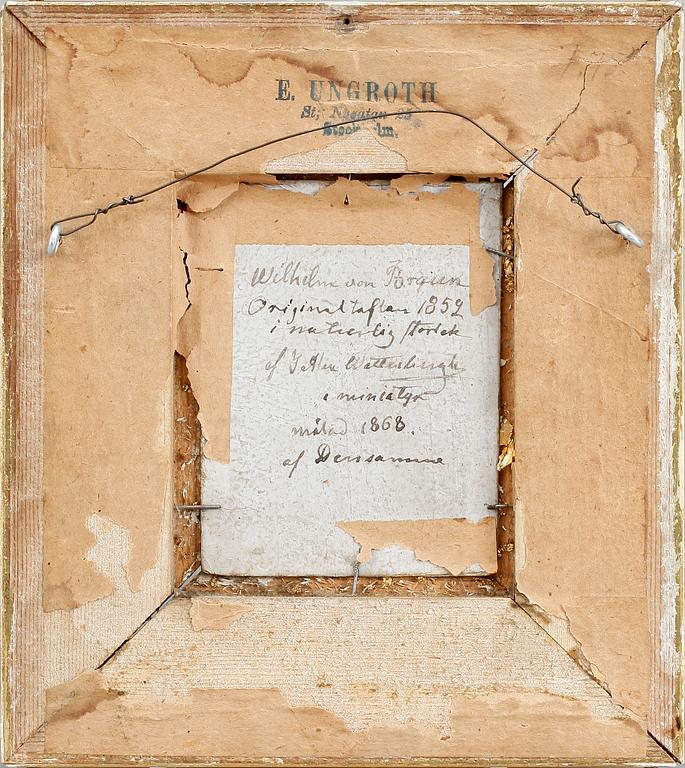 E. UNGROTH
St: Nygatan 25
Stockholm.
Wilhelm von
Originaltaflan 1852
i naturlig storlek
af
i miniatyr
målad 1868.
af Densamme